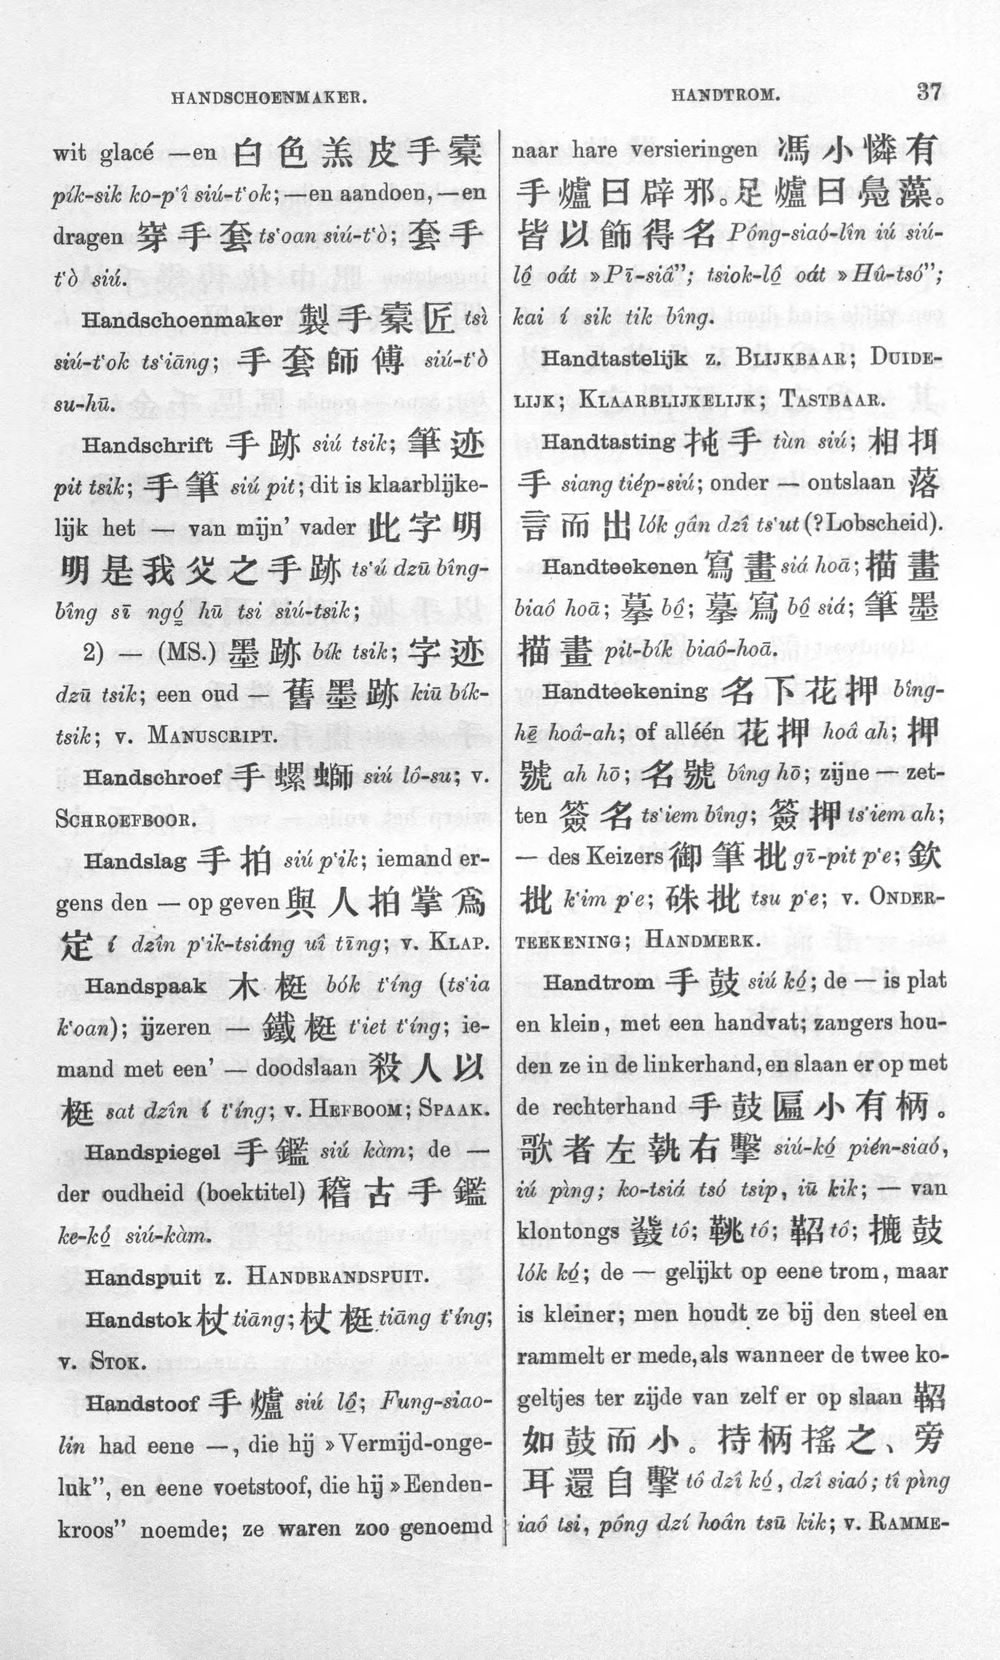 HANDSCHOENMAKER.
HANDTROM.
37
wit glacé —en 白色羔皮手橐
pík-sik ko-p‘î siú-t‘ok; —en aandoen, —en
dragen 穿手套 ts‘oan siú-t‘ò; 套手
t‘ò siú.
Handschoenmaker 製手橐匠 tsì
siú-t‘ok ts‘iāng; 手套師傅 siú-t‘ò
su-hū.
Handschrift 手跡 siú tsik; 筆迹
pit tsik; 手筆 siú pit; dit is klaarblijke-
lijk het — van mijn’ vader 此字明
明是我父之手跡 ts‘ú dzū bîng-
bîng sī ngó̤ hū tsi siú-tsik;
2) — (MS.) 墨跡 bík tsik; 字迹
dzū tsik; een oud — 舊墨跡 kiū bík-
tsik; v. MANUSCRIPT.
Handschroef 手螺螄 siú lô-su; v.
SCHROEFBOOR.
Handslag 手拍 siú p‘ik; iemand er-
gens den — op geven 與人拍掌爲
定 í dzîn p‘ik-tsiáng uî tīng; v. KLAP.
Handspaak 木梃 bók t‘íng (ts‘ia
k‘oan); ijzeren — 鐵梃 t‘iet t‘íng; ie-
mand met een’ — doodslaan 殺人以
梃 sat dzîn í t‘íng; v. HEFBOOM; SPAAK.
Handspiegel 手鑑 siú kàm; de —
der oudheid (boektitel) 稽古手鑑
ke-kó̤ siú-kàm.
Handspuit z. HANDBRANDSPUIT.
Handstok 杖 tiāng; 杖梃 tiāng t‘íng;
v. STOK.
Handstoof 手爐 siú lô̤; Fung-siao-
lin had eene —, die hij »Vermijd-onge-
luk”, en eene voetstoof, die hij »Eenden-
kroos” noemde; ze waren zoo genoemd
naar hare versieringen 馮小憐有
手爐曰辟邪。足爐曰鳧藻。
皆以飾得名 Pông-siaó-lîn iú siú-
lô̤ oát »Pī-siâ”; tsiok-lô̤ oát »Hû-tsó”;
kai í sik tik bîng.
Handtastelijk z. BLIJKBAAR; DUIDE-
LIJK; KLAARBLIJKELIJK; TASTBAAR.
Handtasting 扽手 tùn siú; 相挕
手 siang tiép-siú; onder — ontslaan 落
言而出 lók gân dzî ts‘ut (?Lobscheid).
Handteekenen 寫畫 siá hoā; 描畫
biaô hoā; 摹 bô̤; 摹寫 bô̤ siá; 筆墨
描畫 pit-bík biaô-hoā.
Handteekening 名下花押 bîng-
hē̤ hoâ-ah; of alléén 花押 hoâ ah; 押
號 ah hō; 名號 bîng hō; zijne — zet-
ten 簽名 ts‘iem bîng; 簽押 ts‘iem ah;
— des Keizers 御筆批 gī-pit p‘e; 欽
批 k‘im p‘e; 硃批 tsu p‘e; v. ONDER-
TEEKENING; HANDMERK.
Handtrom 手鼓 siú kó̤; de — is plat
en klein, met een handvat; zangers hou-
den ze in de linkerhand, en slaan er op met
de rechterhand 手鼓匾小有柄。
歌者左執右擊 siú-kó̤ pién-siaó,
iú pìng; ko-tsiá tsó tsip, iū kik; — van
klontongs 鼗 tô; 鞉 tô; 鞀 tô; 摝鼓
lók kó̤; de — gelijkt op eene trom, maar
is kleiner; men houdt ze bij den steel en
rammelt er mede, als wanneer de twee ko-
geltjes ter zijde van zelf er op slaan 鞀
如鼓而小。持柄搖之、旁
耳還自擊 tô dzî kó̤, dzî siaó; tî pìng
iaô tsi, pông dzí hoân tsū kik; v. RAMME-